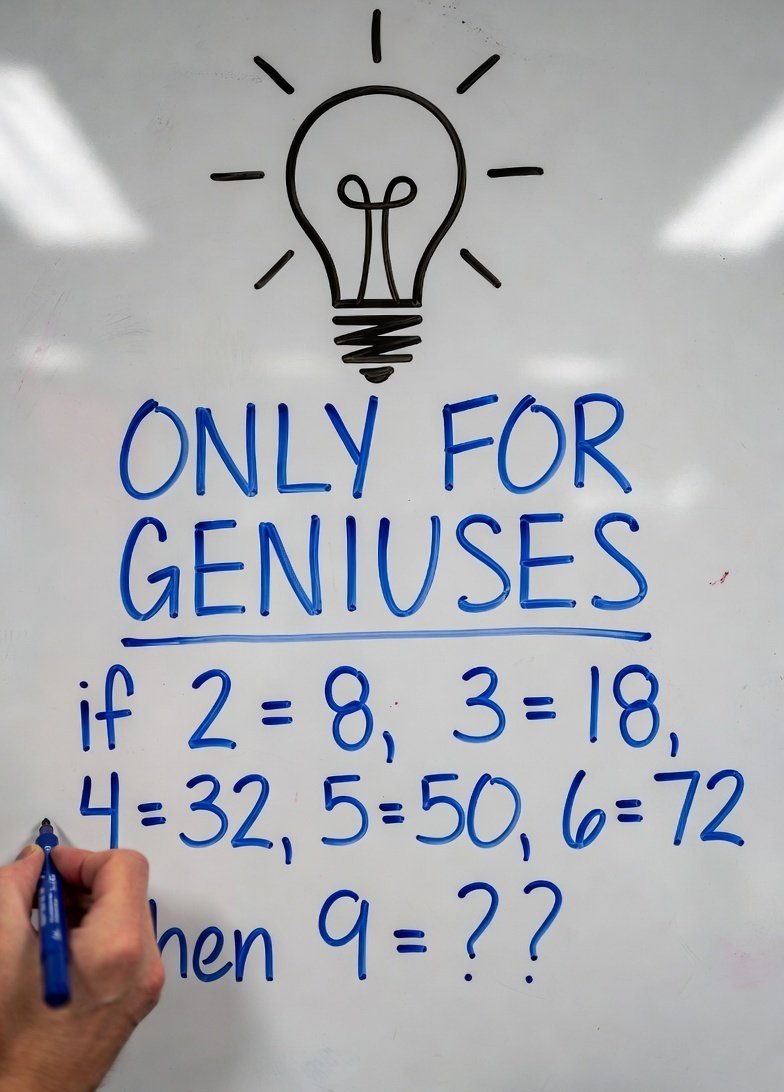 ONLY FOR
GENIUSES
if 2 = 8, 3 = 18,
4 = 32, 5 = 50, 6 = 72
hen 9 = ??